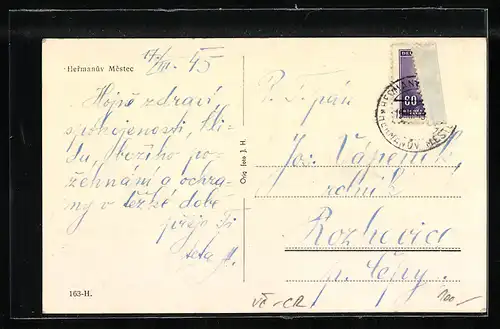 Heřmanův Městec
17/III - 45
Hojně zdraví
spokojenosti, kli-
du, božího po-
žehnání a ochra-
ny v těžké době
přeje Ti
teta A.
163-H.
Orig. foto J. H.
60
HEŘMANŮV MĚSTEC
P. T. pán
Jos. Vápeník,
rolník
Rozhovice
p.
VČ - CR
100,-